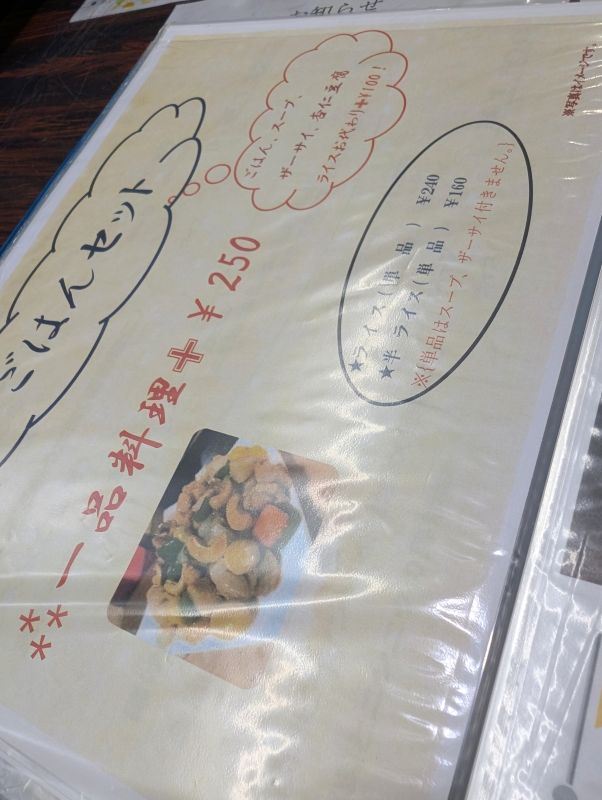 お知らせ
ごはんセット
ごはん、スープ、
ザーサイ、杏仁豆腐
ライスお代わり+¥100！
**一品料理+¥250
★ライス(単品) ¥240
★半 ライス(単品) ¥160
※{単品はスープ、ザーサイ付きません。}
※写真はイメージです。